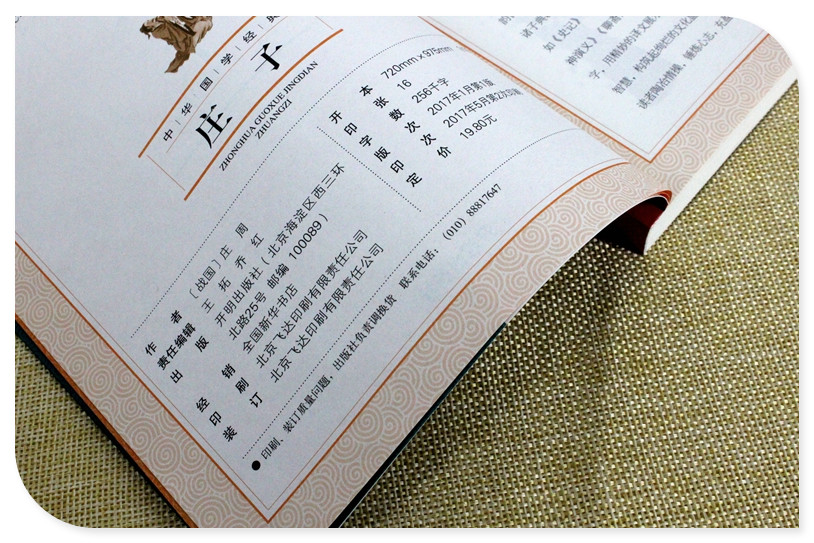 中华国学经典
庄子
ZHONGHUA GUOXUE JINGDIAN
ZHUANGZI
作者 [战国]庄 周
责任编辑 王 拓 乔 红
出版 开明出版社（北京海淀区西三环
北路25号 邮编 100089）
经销 全国新华书店
印刷 北京飞达印刷有限责任公司
装订 北京飞达印刷有限责任公司
开本 720mm×975mm
印张 16
字数 256千字
版次 2017年1月第1版
印次 2017年5月第2次印刷
定价 19.80元
●印刷、装订质量问题，出版社负责调换货 联系电话：（010）88817647
如《史记》
神演义》
字，用精妙的译文展
智慧，构筑起绚烂的文化
读者陶冶情操、锤炼心志，充